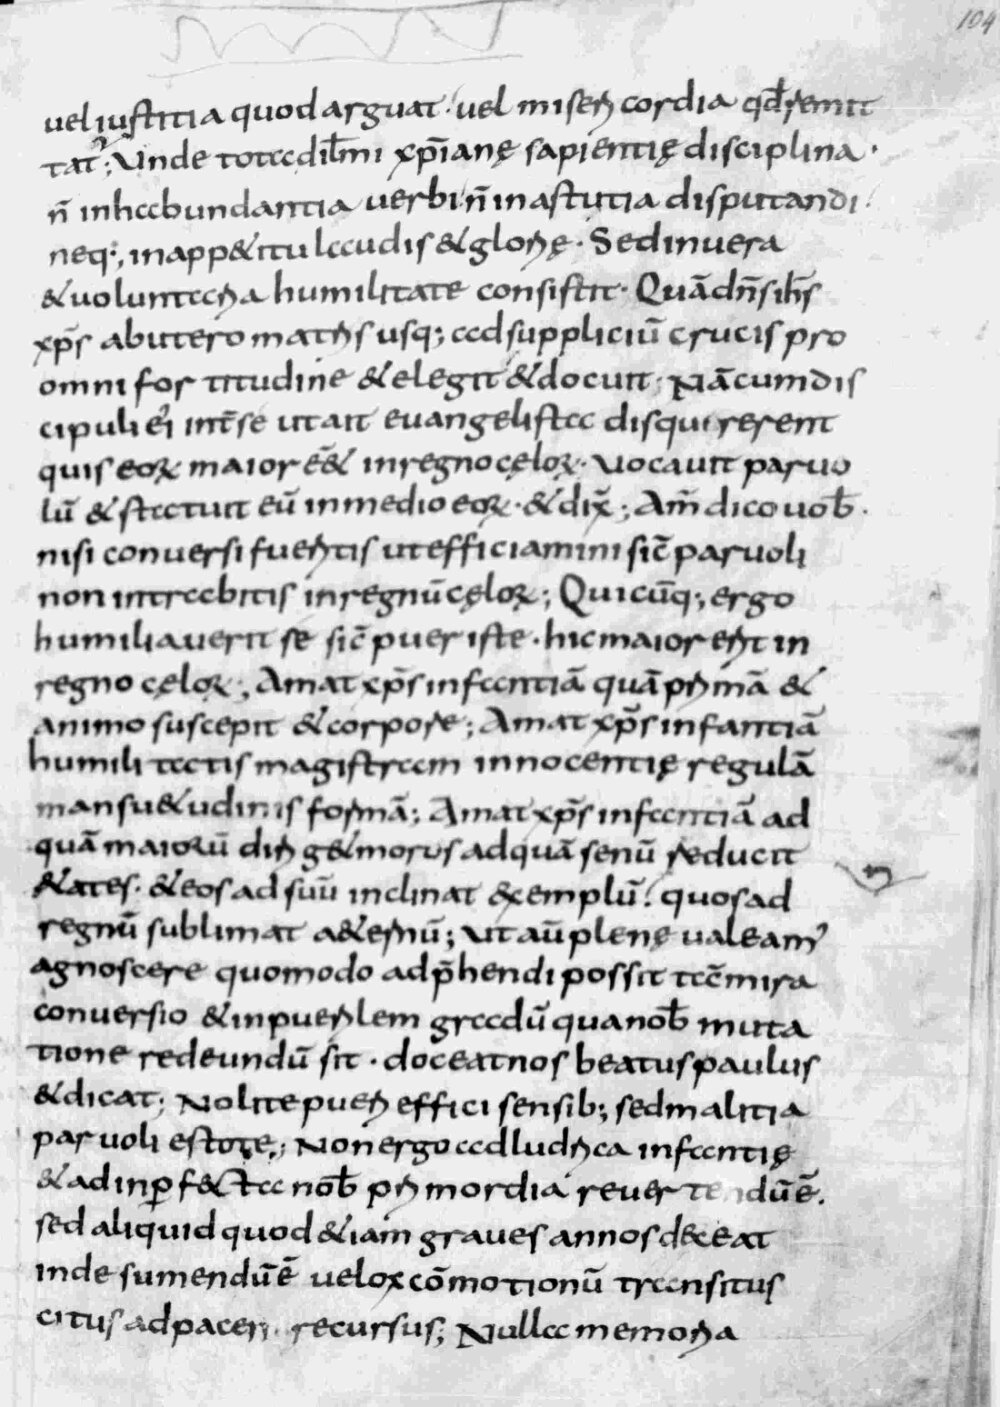 104
uel iustitia quod arguat. uel misericordia qđ remit
tat᷒; Unde tota dil̄mi xp̄ianę sapientię disciplina.
n̄ in habundantia uerbi n̄ in astutia disputandi.
neq;, in app&itu laudis & glorię. Sed in uera
& uoluntaria humilitate consistit. Quā dn̄s ih̄s
xp̄s ab utero matris usq; ad suppliciū crucis pro
omni fortitudine & elegit & docuit; Nā cum dis
cipuli ei᷒ int̄ se ut ait euangelista disquirerent
quis eoꝝ maior ēē& in regno cęloꝝ. uocauit paruo
lū & statuit eū in medio eoꝝ. & dix̄; Am̄ dico uob̄.
nisi conuersi fueritis ut efficiamini sic̄ paruoli
non intrabitis in regnū cęloꝝ; Quicūq;, ergo
humiliauerit se sic̄ puer iste. hic maior erit in
regno cęloꝝ; Amat xp̄s infantiā quā primā &
animo suscepit & corpore; Amat xp̄s infantiā
humilitatis magistram innocentię regulā
mansu&udinis formā; Amat xp̄s infantiā ad
quā maiorū dirig& mores ad quā senū reducit
&ates. & eos ad suū inclinat exemplū. quos ad
regnū sublimat a&ernū; Ut aū plene ualeam᷒
agnoscere quomodo adp̄hendi possit tā mira
conuersio & in puerilem gradū qua nob̄ muta
tione redeundū sit. doceat nos beatus paulus
& dicat; Nolite pueri effici sensib; sed malitia
paruoli estote; Non ergo ad ludrica infantię
& ad inꝑf&ta nob̄ primordia reuertendū ē.
sed aliquid quod &iam graues annos deceat
inde sumendū ē uelox cōmotionū transitus
citus ad pacem recursus; Nulla memoria